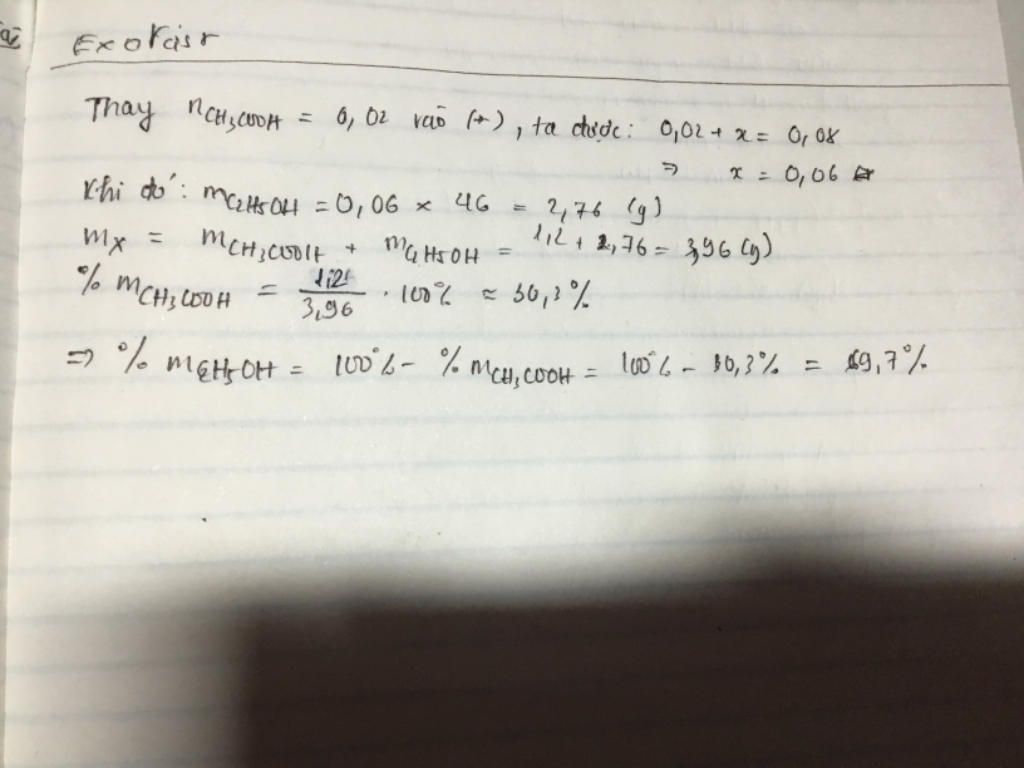 Exorcisr
Thay nCH3COOH = 0,02 vào (*), ta được: 0,02 + x = 0,08
⇒ x = 0,06
Khi đó: mC2H5OH = 0,06 × 46 = 2,76 (g)
mX = mCH3COOH + mC2H5OH = 1,2 + 2,76 = 3,96 (g)
% mCH3COOH = 1,2 / 3,96 . 100% ≈ 30,3%
⇒ % mC2H5OH = 100% - % mCH3COOH = 100% - 30,3% = 69,7%